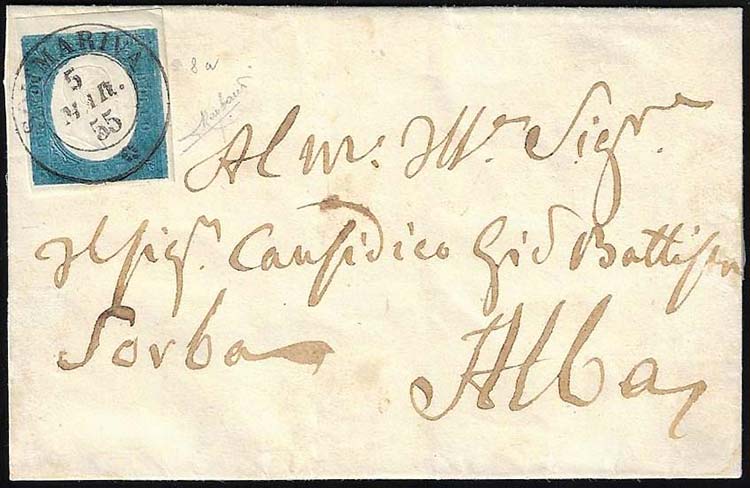 MARIVA
5
MAR.
55
8a
Al M.º Ill.re Sigr.e
Il sigr. Causidico Gio Battista
Sorba
Alba